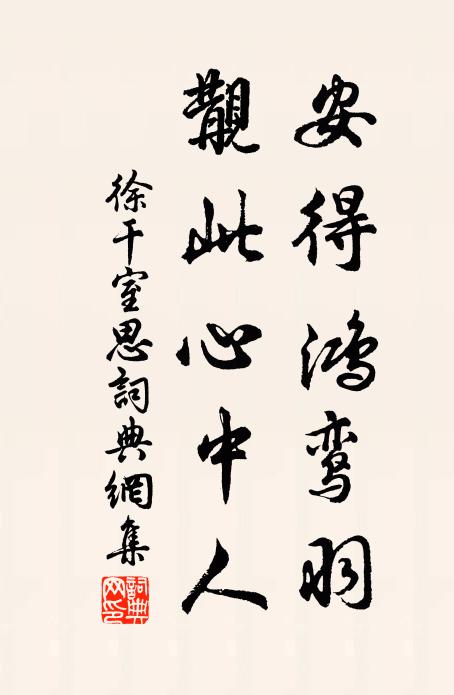 安得鴻鸾羽
觀此心中人
徐干室思詞典網集
詞典网印